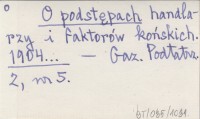 O podstępach handla-
rzy i faktorów końskich.
1904... — Gaz. Podtatrz.
2, nr 5.